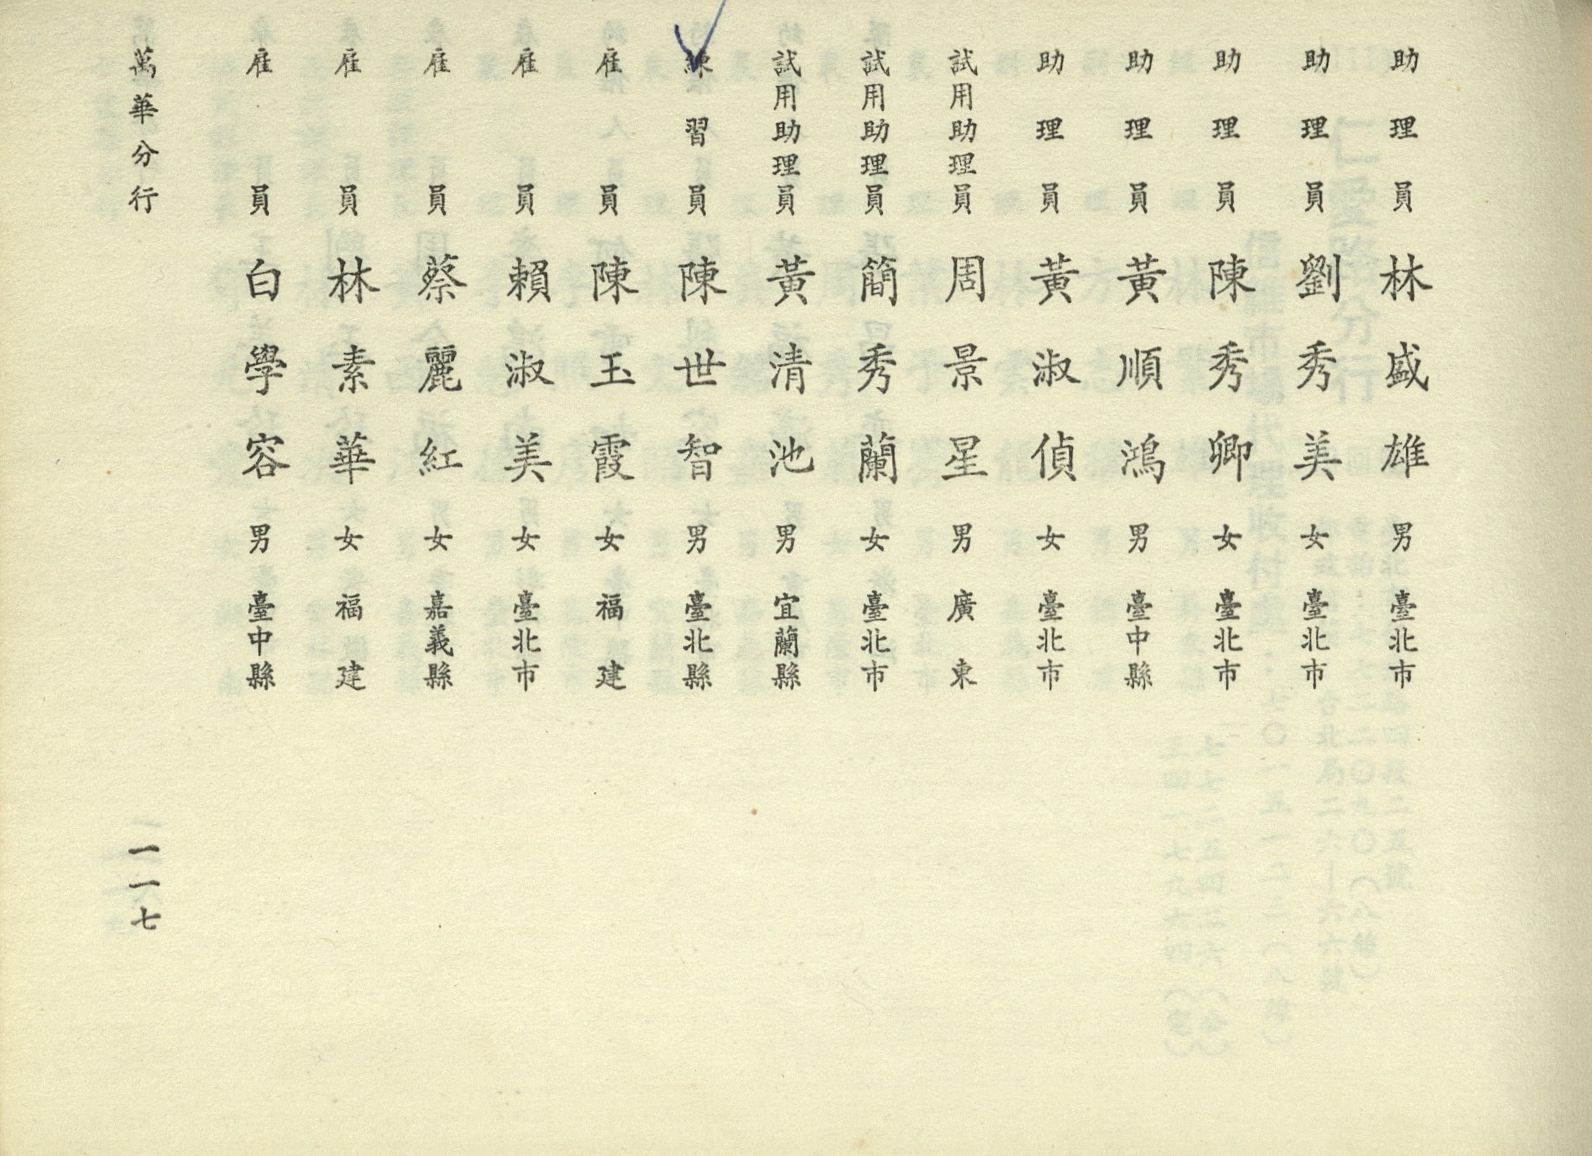 助理員 林盛雄 男 臺北市
助理員 劉秀美 女 臺北市
助理員 陳秀卿 女 臺北市
助理員 黃順鴻 男 臺中縣
助理員 黃淑偵 女 臺北市
試用助理員 周景星 男 廣東
試用助理員 簡秀蘭 女 臺北市
試用助理員 黃清池 男 宜蘭縣
練習員 陳世智 男 臺北縣
雇員 陳玉霞 女 福建
雇員 賴淑美 女 臺北市
雇員 蔡麗紅 女 嘉義縣
雇員 林素華 女 福建
雇員 白學容 男 臺中縣
萬華分行 一一七